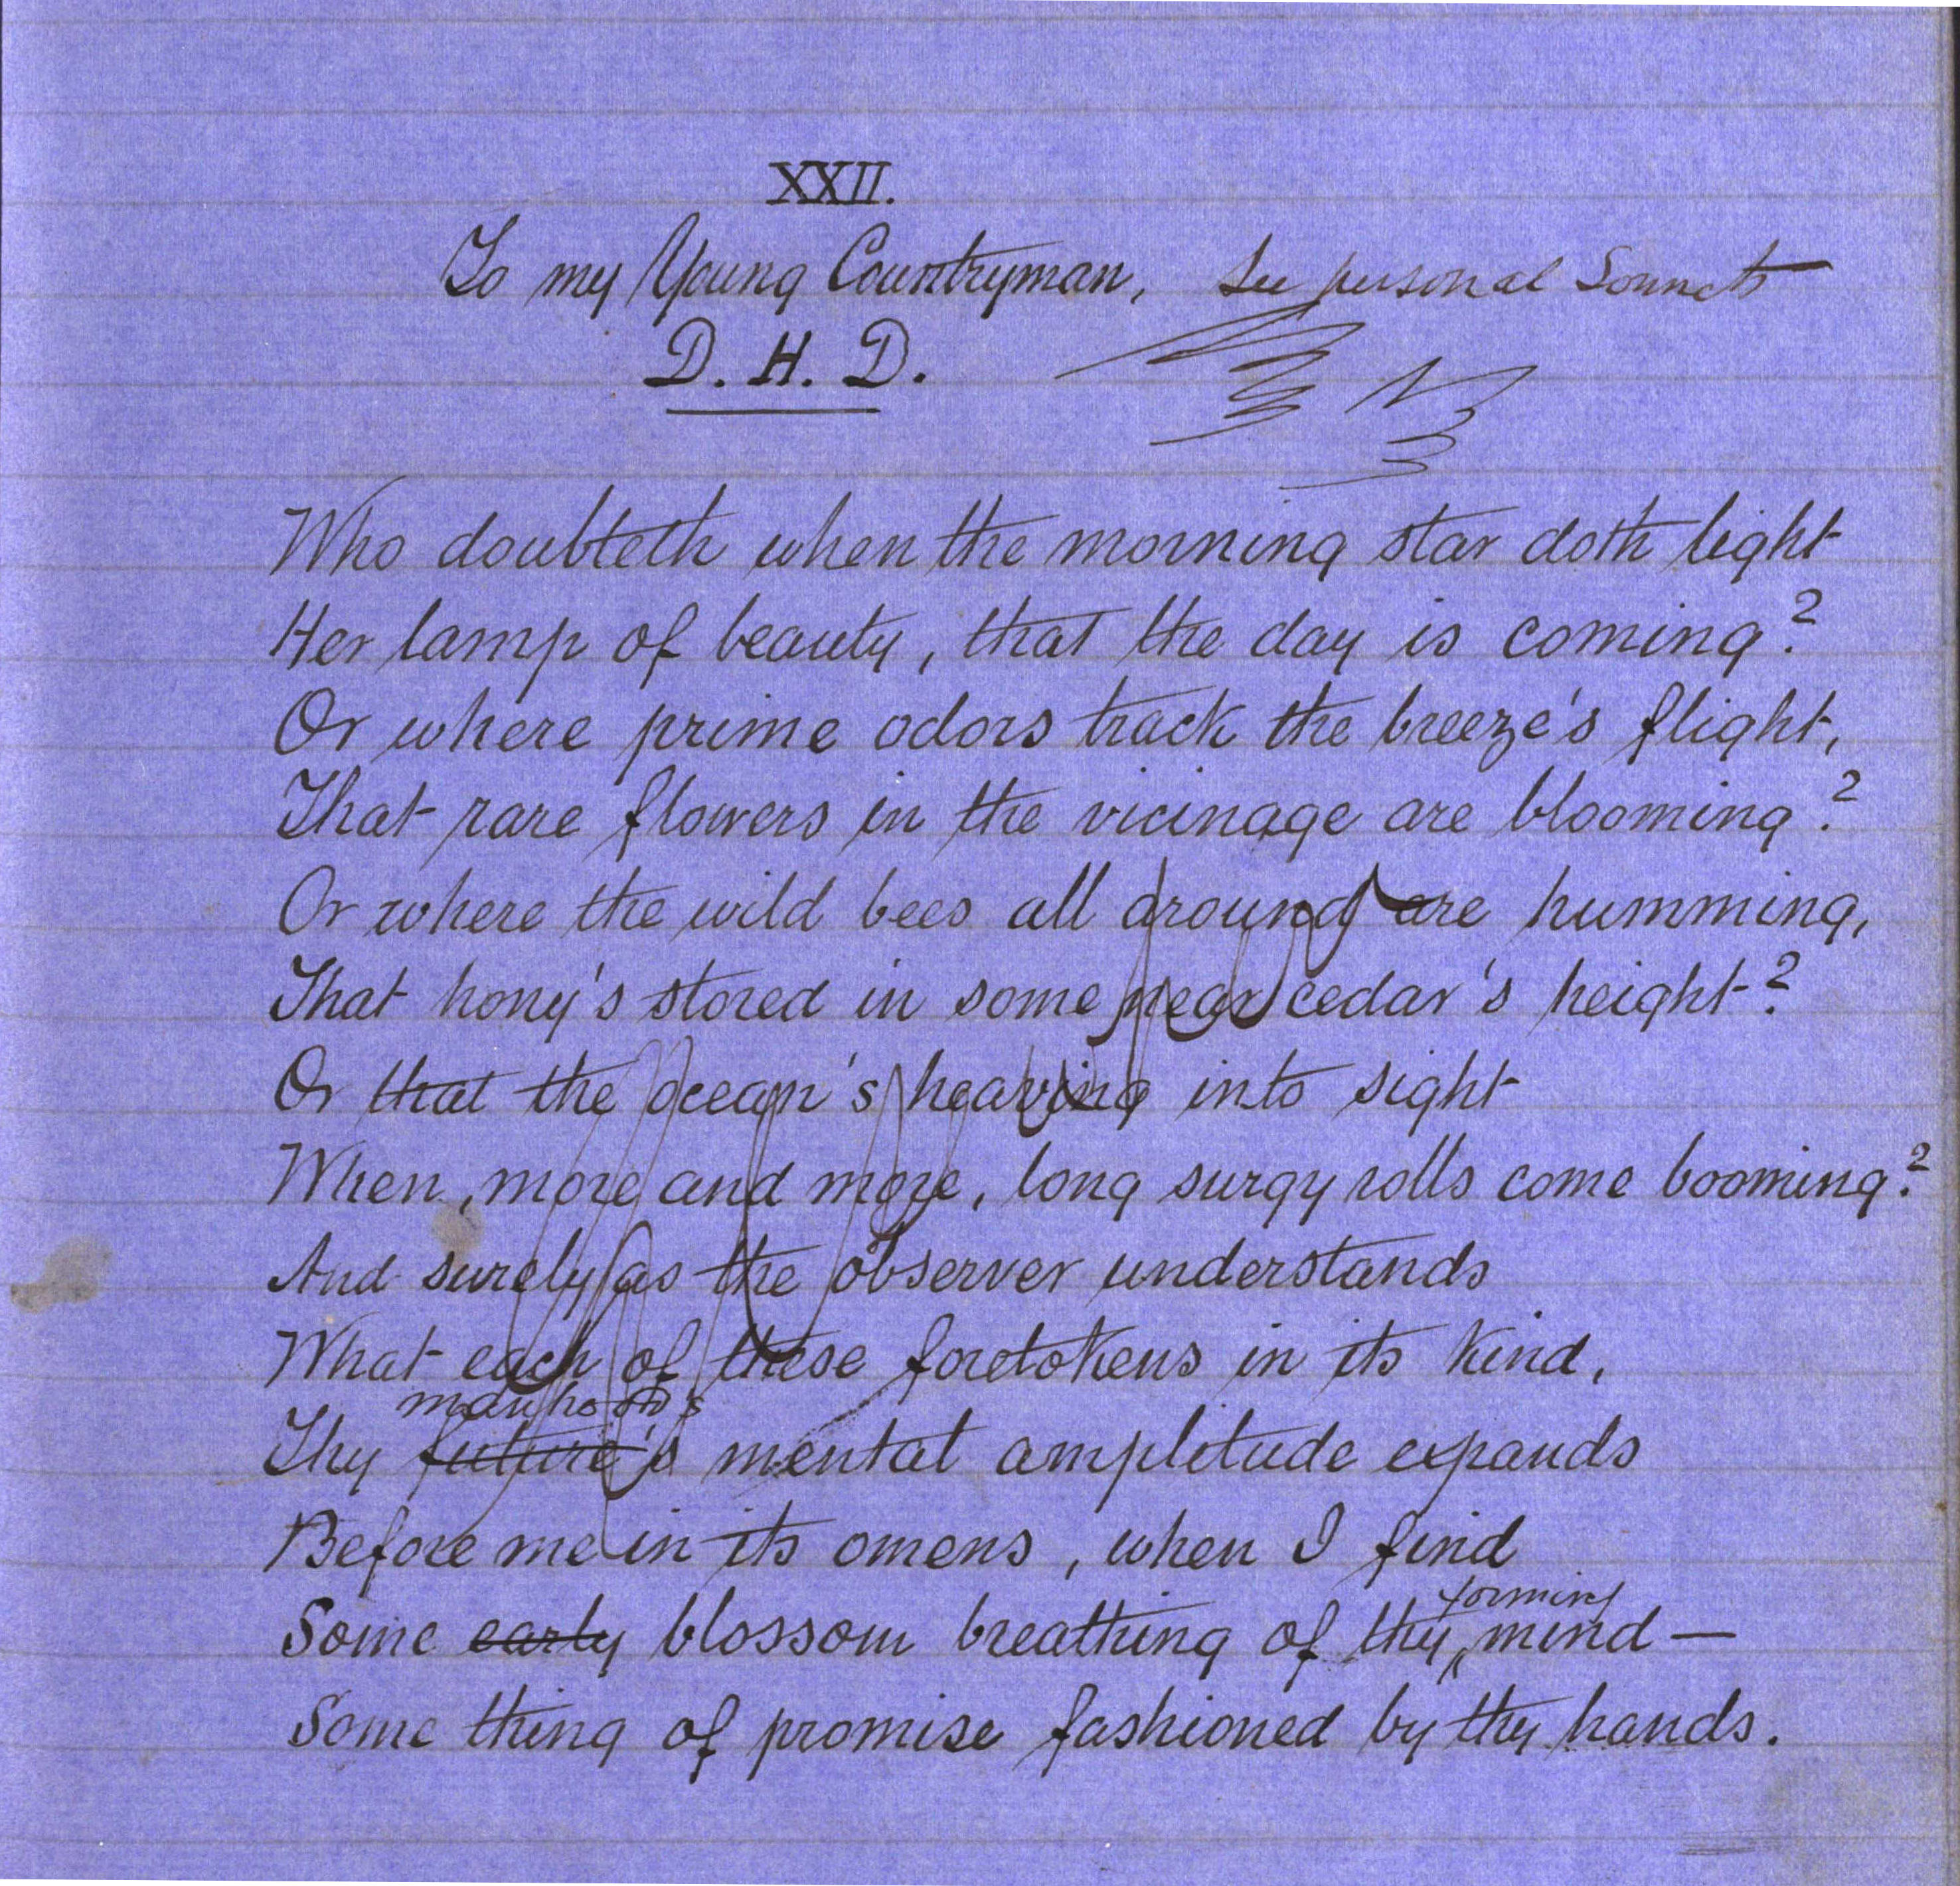 XXII.
To my Young Countryman, See personal Sonnets
D. H. D.
Who doubteth when the morning star doth light
Her lamp of beauty, that the day is coming?
Or where prime odors track the breeze's flight,
That rare flowers in the vicinage are blooming?
Or where the wild bees all around are humming,
That hony's stored in some near cedar's height?
Or that the ocean's heaving into sight
When, more and more, long surgy rolls come booming?
And surely as the observer understands
What each of these foretokens in its kind,
manhood's
Thy future's mental amplitude expands
Before me in its omens, when I find
forming
Some early blossom breathing of thy mind —
Some thing of promise fashioned by thy hands.